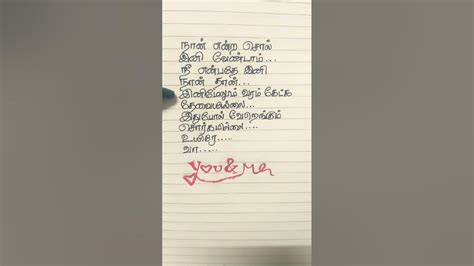 நான் என்ற சொல்
இனி வேண்டாம்...
நீ என்பதே இனி
நான் தான்...
இனிமேலும் வரம் கேட்க
தேவையில்லை...
இதுபோல் வேறெங்கும்
சொர்கமில்லை....
உயிரே....
வா.....
you & Me